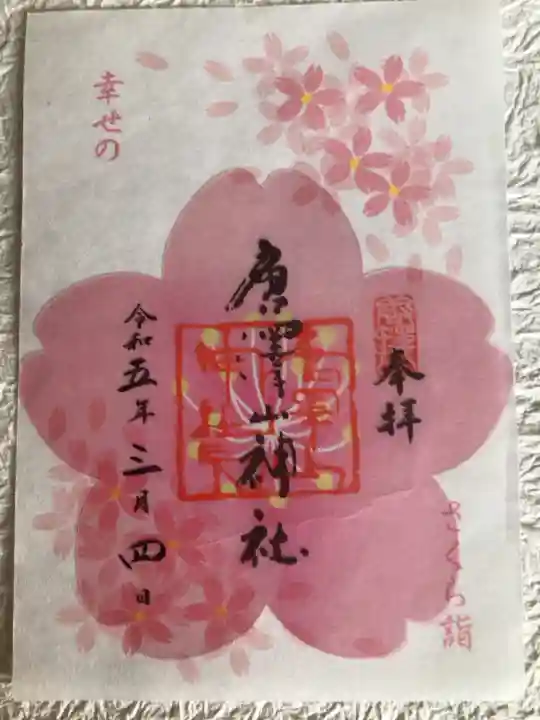 奉拝
廣澤山神社
令和五年三月四日
幸せの
さくら詣